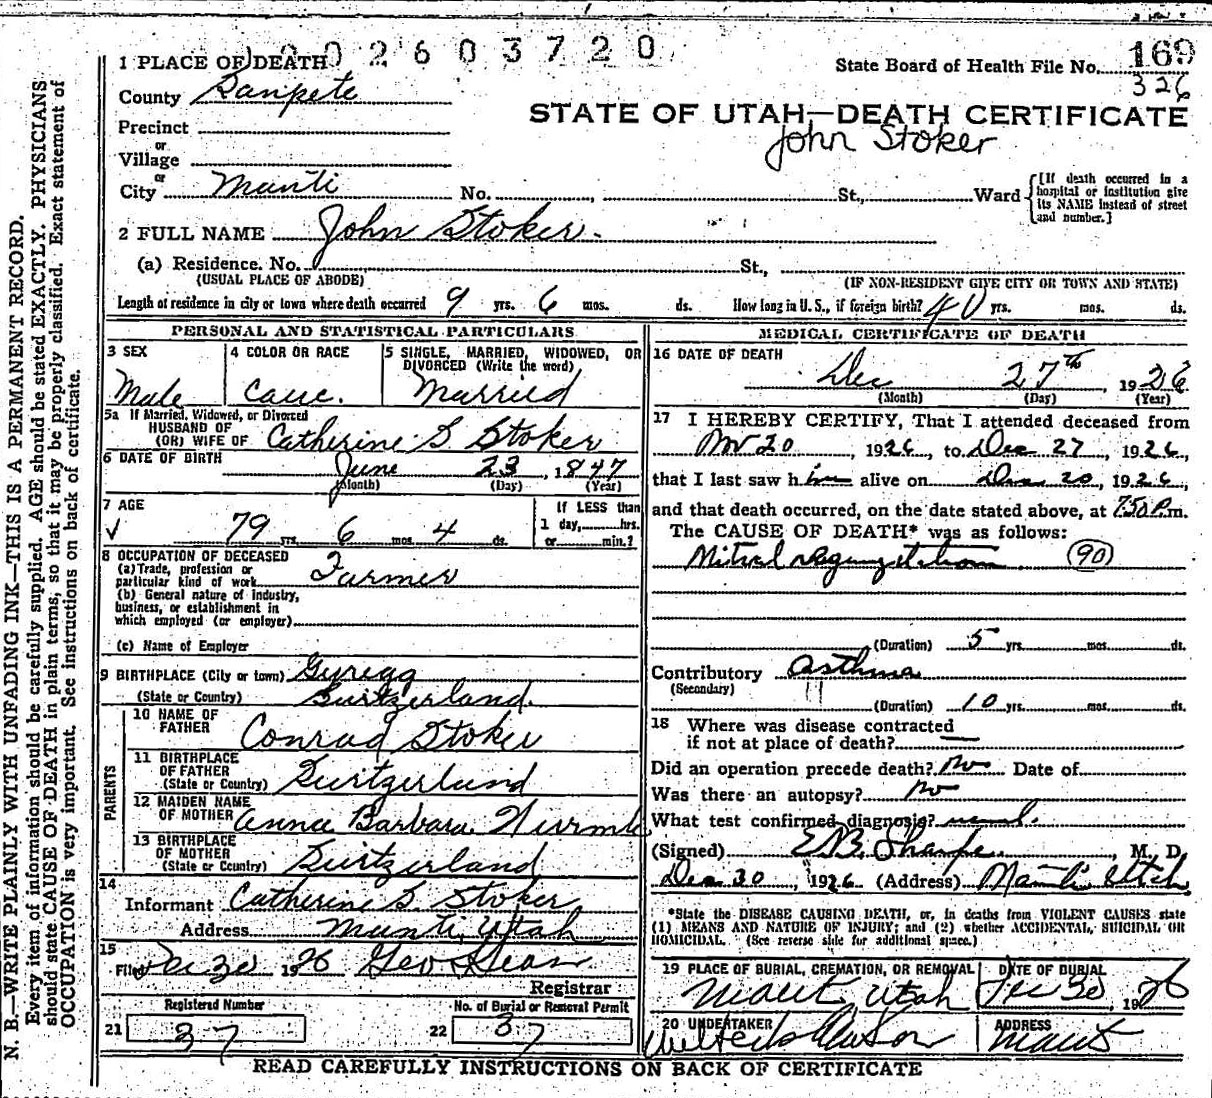 002603720
1 PLACE OF DEATH
State Board of Health File No. 169
326
County Sanpete
STATE OF UTAH—DEATH CERTIFICATE
John Stoker
Precinct
or
Village
or
City Manti No. St., Ward
[If death occurred in a hospital or institution give its NAME instead of street and number.]
2 FULL NAME John Stoker.
(a) Residence. No. St.,
(USUAL PLACE OF ABODE) (IF NON-RESIDENT GIVE CITY OR TOWN AND STATE)
Length of residence in city or town where death occurred 9 yrs. 6 mos. ds. How long in U. S., if foreign birth? 40 yrs. mos. ds.
PERSONAL AND STATISTICAL PARTICULARS
3 SEX
Male
4 COLOR OR RACE
Cauc.
5 SINGLE, MARRIED, WIDOWED, OR DIVORCED (Write the word)
Married
5a If Married, Widowed, or Divorced
HUSBAND OF
(OR) WIFE OF Catherine S Stoker
6 DATE OF BIRTH June 23, 1847
(Month) (Day) (Year)
7 AGE
79 yrs. 6 mos. 4 ds.
If LESS than
1 day, hrs.
or min.?
8 OCCUPATION OF DECEASED
(a) Trade, profession or
particular kind of work Farmer
(b) General nature of industry,
business, or establishment in
which employed (or employer)
(c) Name of Employer
9 BIRTHPLACE (City or town)
(State or Country) Switzerland.
PARENTS
10 NAME OF
FATHER Conrad Stoker
11 BIRTHPLACE
OF FATHER
(State or Country) Switzerland
12 MAIDEN NAME
OF MOTHER Anna Barbara
13 BIRTHPLACE
OF MOTHER
(State or Country) Switzerland
14
Informant Catherine S. Stoker
Address Manti, Utah
15
Filed 1926 Geo
Registrar
Registered Number
21 37
No. of Burial or Removal Permit
22 37
MEDICAL CERTIFICATE OF DEATH
16 DATE OF DEATH
Dec 27th, 1926
(Month) (Day) (Year)
17 I HEREBY CERTIFY, That I attended deceased from
Nov 20, 1926, to Dec 27, 1926,
that I last saw h im alive on Dec 20, 1926,
and that death occurred, on the date stated above, at 7:50 P.m.
The CAUSE OF DEATH* was as follows:
Mitral regurgitation 90
(Duration) 5 yrs. mos. ds.
Contributory Asthma
(Secondary)
(Duration) 10 yrs. mos. ds.
18 Where was disease contracted
if not at place of death?
Did an operation precede death? No Date of
Was there an autopsy? No
What test confirmed diagnosis? usual.
(Signed) Sharpe., M. D.
Dec 30, 1926 (Address) Manti Utah
*State the DISEASE CAUSING DEATH, or, in deaths from VIOLENT CAUSES state
(1) MEANS AND NATURE OF INJURY; and (2) whether ACCIDENTAL, SUICIDAL OR
HOMICIDAL. (See reverse side for additional space.)
19 PLACE OF BURIAL, CREMATION, OR REMOVAL
Manti, Utah
DATE OF BURIAL
Dec 30 1926
20 UNDERTAKER
ADDRESS
Manti
READ CAREFULLY INSTRUCTIONS ON BACK OF CERTIFICATE
N. B.—WRITE PLAINLY WITH UNFADING INK—THIS IS A PERMANENT RECORD.
Every item of information should be carefully supplied. AGE should be stated EXACTLY. PHYSICIANS
should state CAUSE OF DEATH in plain terms, so that it may be properly classified. Exact statement of
OCCUPATION is very important. See instructions on back of certificate.